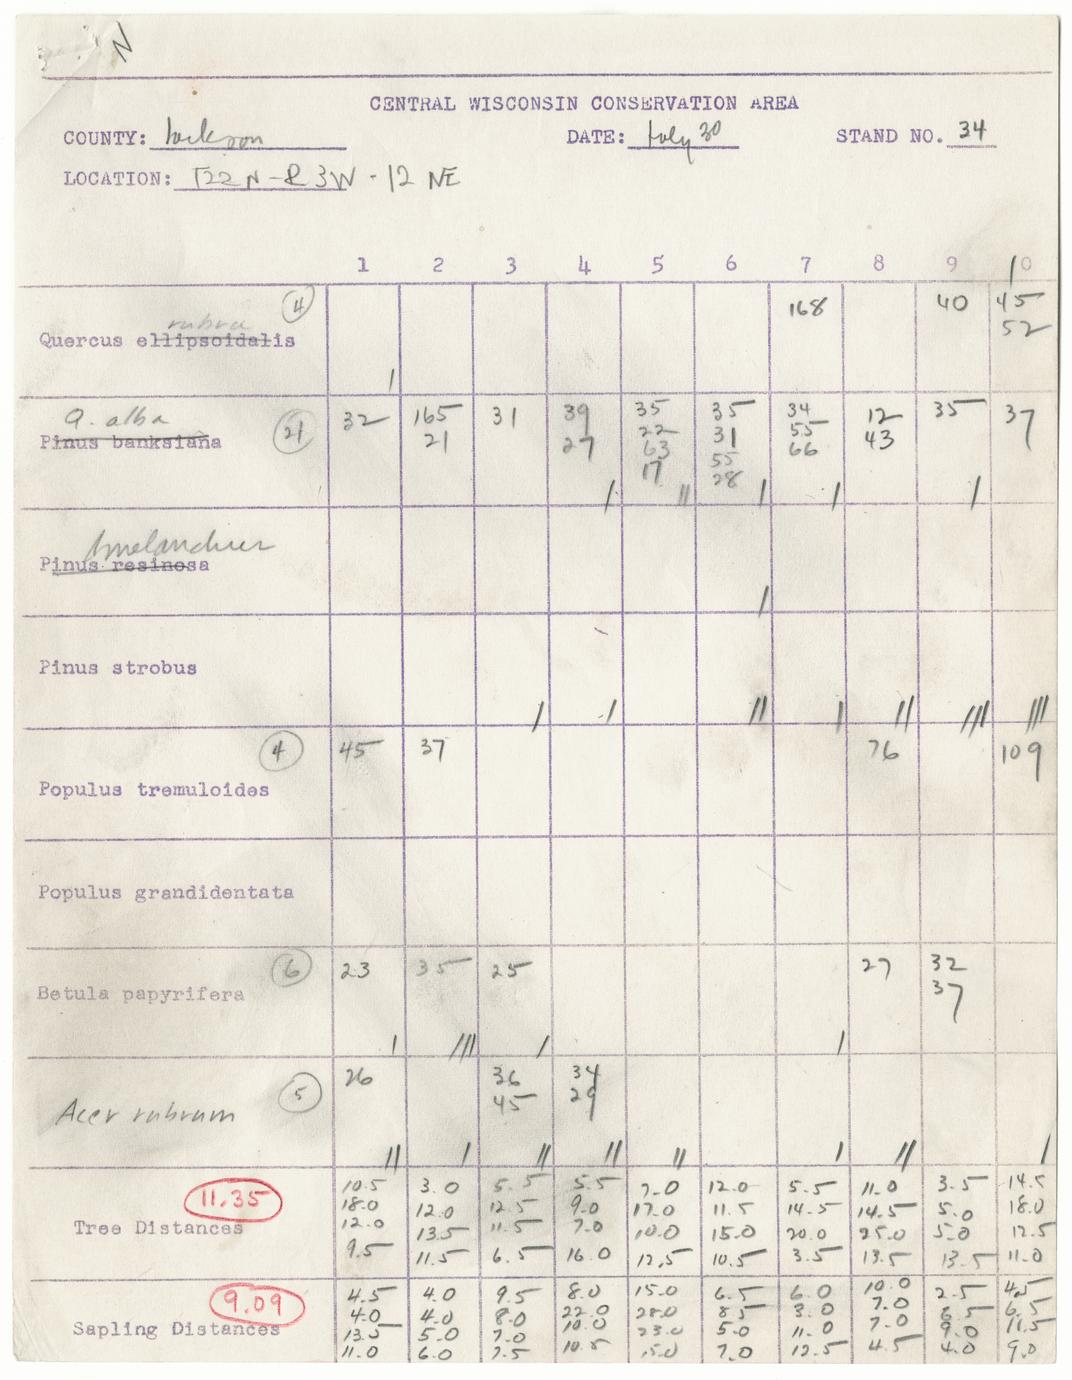 N
CENTRAL WISCONSIN CONSERVATION AREA
COUNTY: Jackson DATE: July 30 STAND NO. 34
LOCATION: T22N-R3W-12 NE
1 2 3 4 5 6 7 8 9 10
4 168 40 45
rubra 52
Quercus ellipsoidalis
/
Q. alba 32 165 31 39 35 35 34 12 35 37
Pinus banksiana 21 21 27 22 31 55 43
63 55 66
17 28
/ // / / /
Amelanchier
Pinus resinosa
/
Pinus strobus
/ / // / // /// ///
4 45 37 76 109
Populus tremuloides
Populus grandidentata
6 23 35 25 27 32
Betula papyrifera 37
/ /// / /
26 36 34
5 45 29
Acer rubrum
// / // // // / // /
11.35 10.5 3.0 5.5 5.5 7.0 12.0 5.5 11.0 3.5 14.5
18.0 12.0 12.5 9.0 17.0 11.5 14.5 14.5 5.0 18.0
Tree Distances 12.0 13.5 11.5 7.0 10.0 15.0 20.0 25.0 5.0 12.5
9.5 11.5 6.5 16.0 12.5 10.5 3.5 13.5 13.5 11.0
9.09 4.5 4.0 9.5 8.0 15.0 6.5 6.0 10.0 2.5 4.5
4.0 4.0 8.0 22.0 28.0 8.5 3.0 7.0 6.5 6.5
Sapling Distances 13.5 5.0 7.0 10.0 23.0 5.0 11.0 7.0 9.0 11.5
11.0 6.0 7.5 10.5 15.0 7.0 12.5 4.5 4.0 9.0